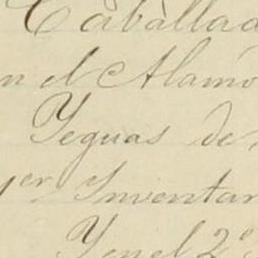 Caballad
en el Alamo
Yeguas de
yer Inventar
Y en el 2º